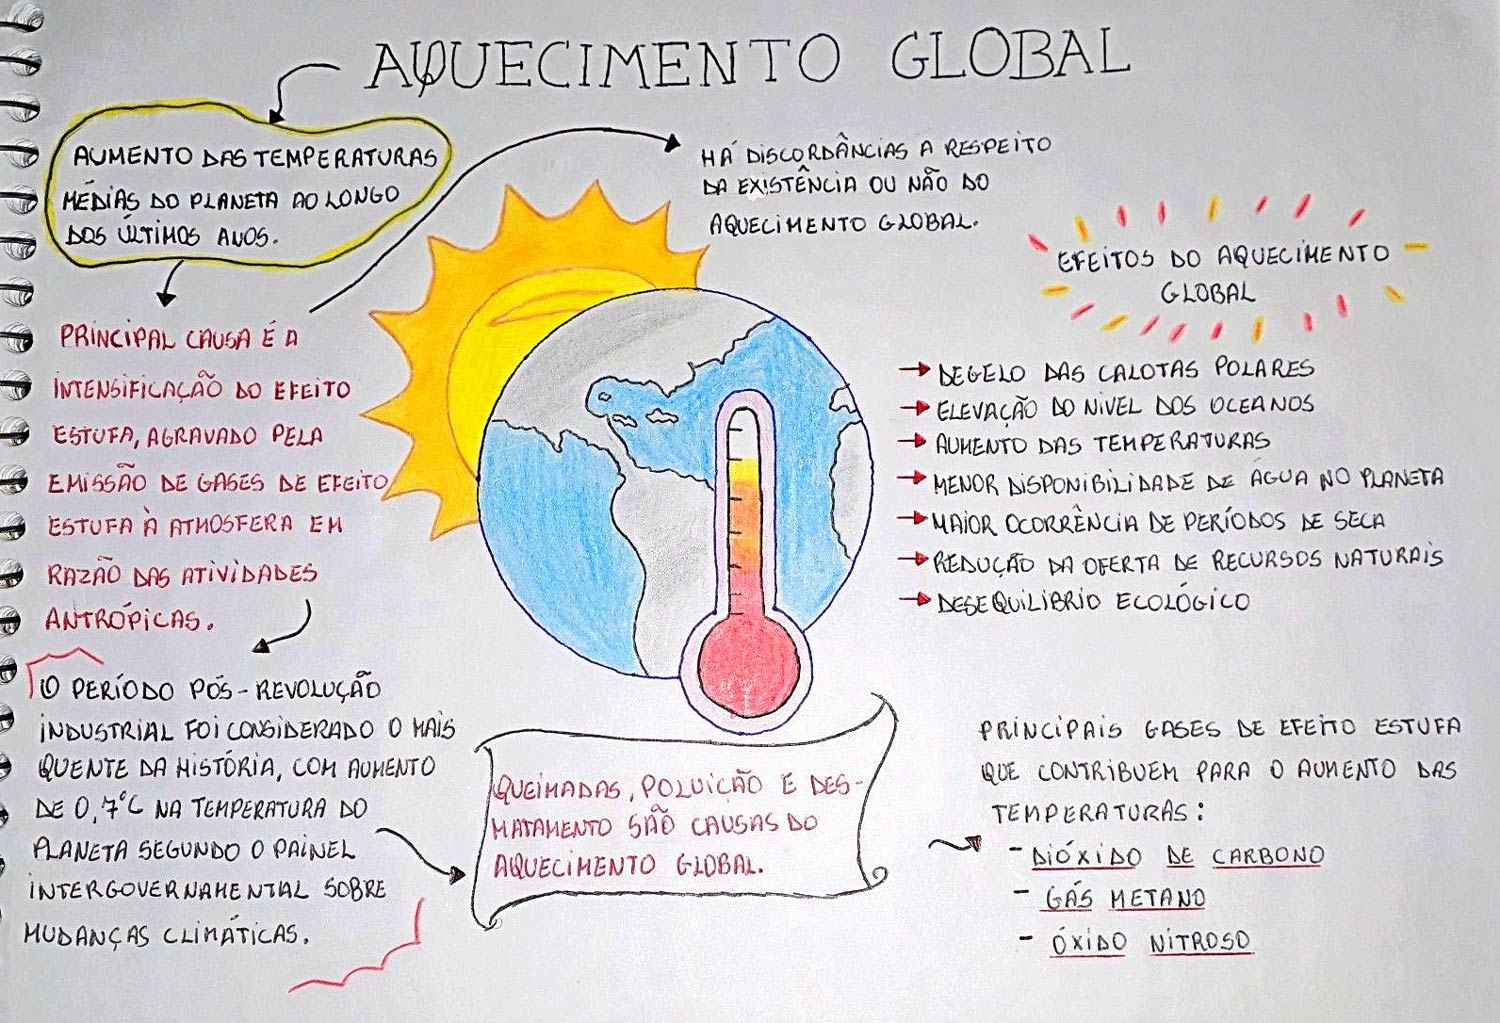 AQUECIMENTO GLOBAL
AUMENTO DAS TEMPERATURAS
MÉDIAS DO PLANETA AO LONGO
DOS ÚLTIMOS ANOS.
HÁ DISCORDÂNCIAS A RESPEITO
DA EXISTÊNCIA OU NÃO DO
AQUECIMENTO GLOBAL.
PRINCIPAL CAUSA É A
INTENSIFICAÇÃO DO EFEITO
ESTUFA, AGRAVADO PELA
EMISSÃO DE GASES DE EFEITO
ESTUFA À ATMOSFERA EM
RAZÃO DAS ATIVIDADES
ANTRÓPICAS.
O PERÍODO PÓS-REVOLUÇÃO
INDUSTRIAL FOI CONSIDERADO O MAIS
QUENTE DA HISTÓRIA, COM AUMENTO
DE 0,7°C NA TEMPERATURA DO
PLANETA SEGUNDO O PAINEL
INTERGOVERNAMENTAL SOBRE
MUDANÇAS CLIMÁTICAS.
QUEIMADAS, POLUIÇÃO E DES-
MATAMENTO SÃO CAUSAS DO
AQUECIMENTO GLOBAL.
EFEITOS DO AQUECIMENTO
GLOBAL
→ DEGELO DAS CALOTAS POLARES
→ ELEVAÇÃO DO NÍVEL DOS OCEANOS
→ AUMENTO DAS TEMPERATURAS
→ MENOR DISPONIBILIDADE DE ÁGUA NO PLANETA
→ MAIOR OCORRÊNCIA DE PERÍODOS DE SECA
→ REDUÇÃO DA OFERTA DE RECURSOS NATURAIS
→ DESEQUILIBRIO ECOLÓGICO
PRINCIPAIS GASES DE EFEITO ESTUFA
QUE CONTRIBUEM PARA O AUMENTO DAS
TEMPERATURAS:
- DIÓXIDO DE CARBONO
- GÁS METANO
- ÓXIDO NITROSO